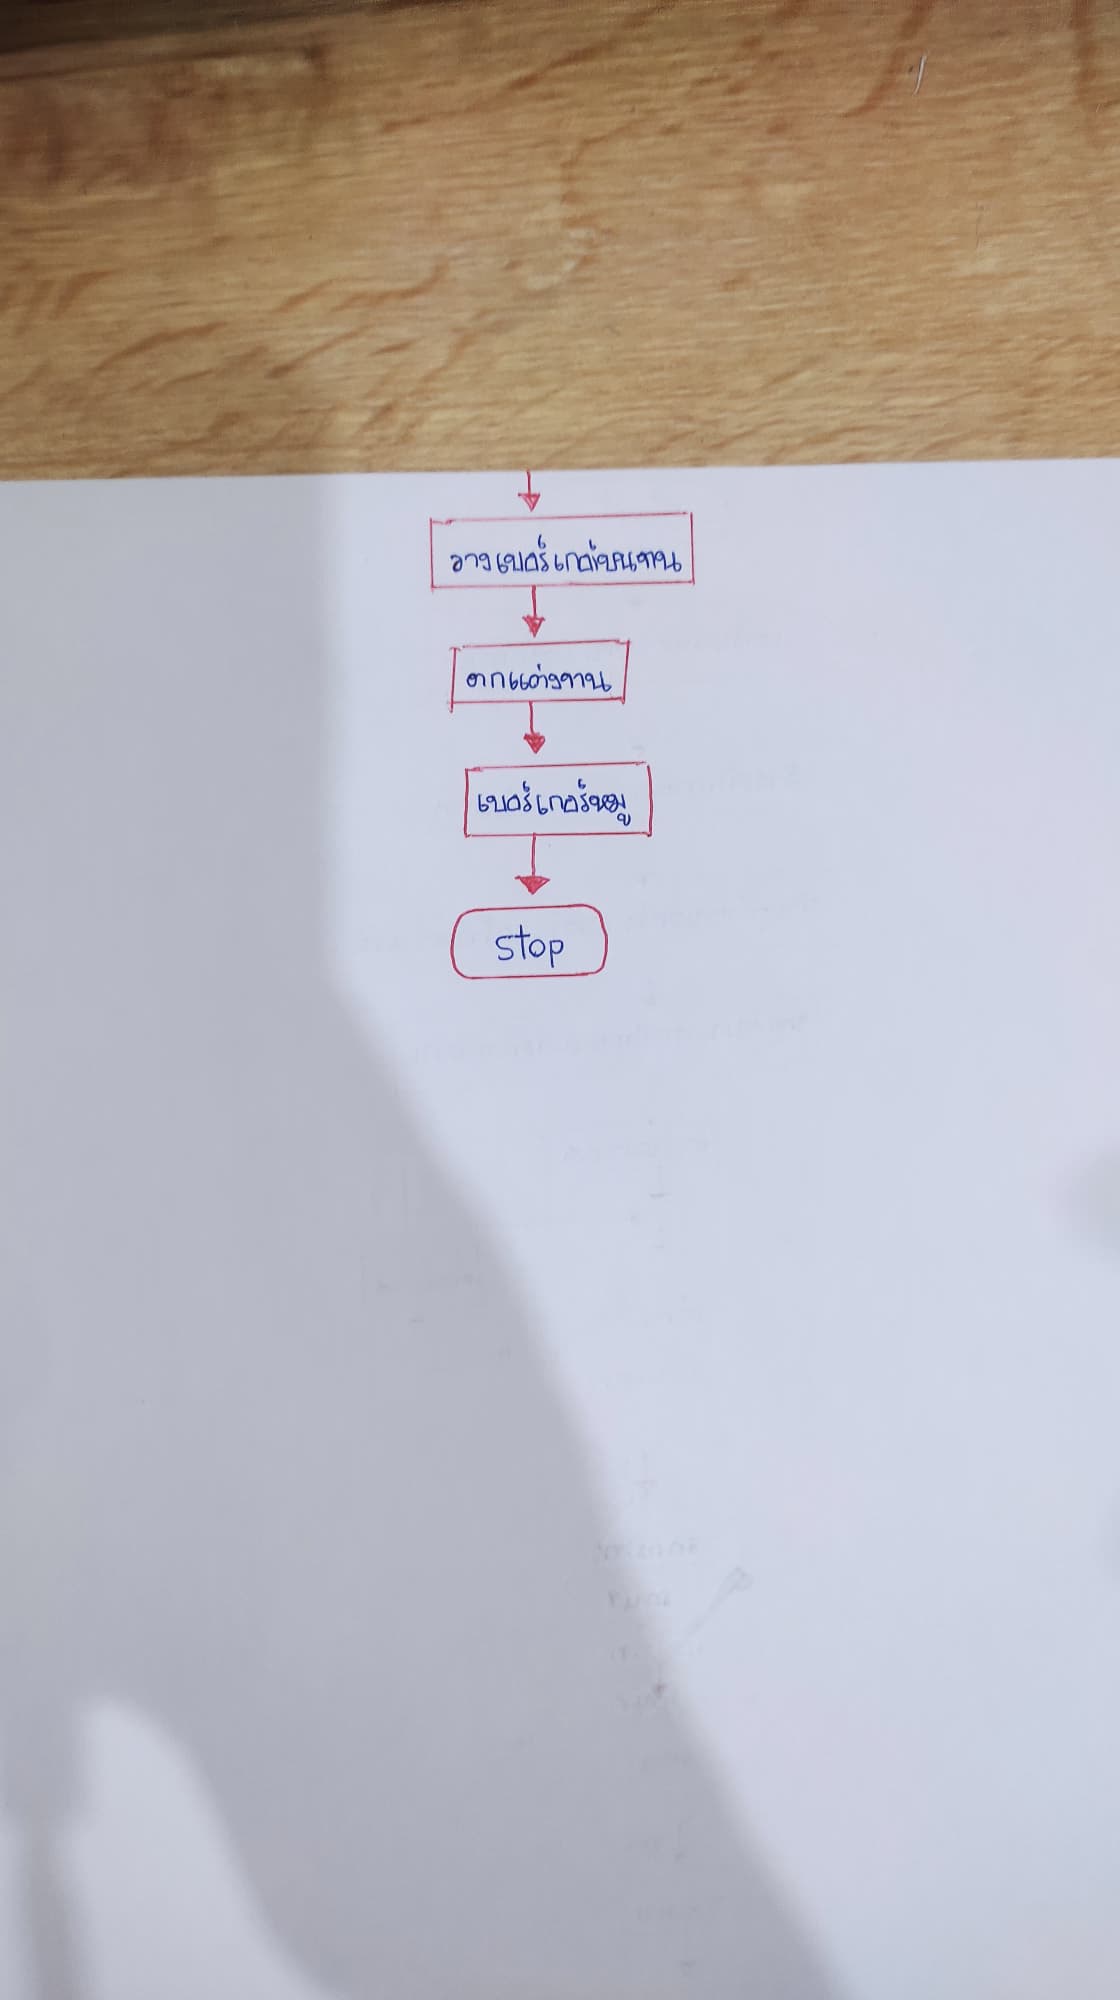 วางเบอร์เกอร์บนจาน
ตกแต่งจาน
เบอร์เกอร์หมู
stop